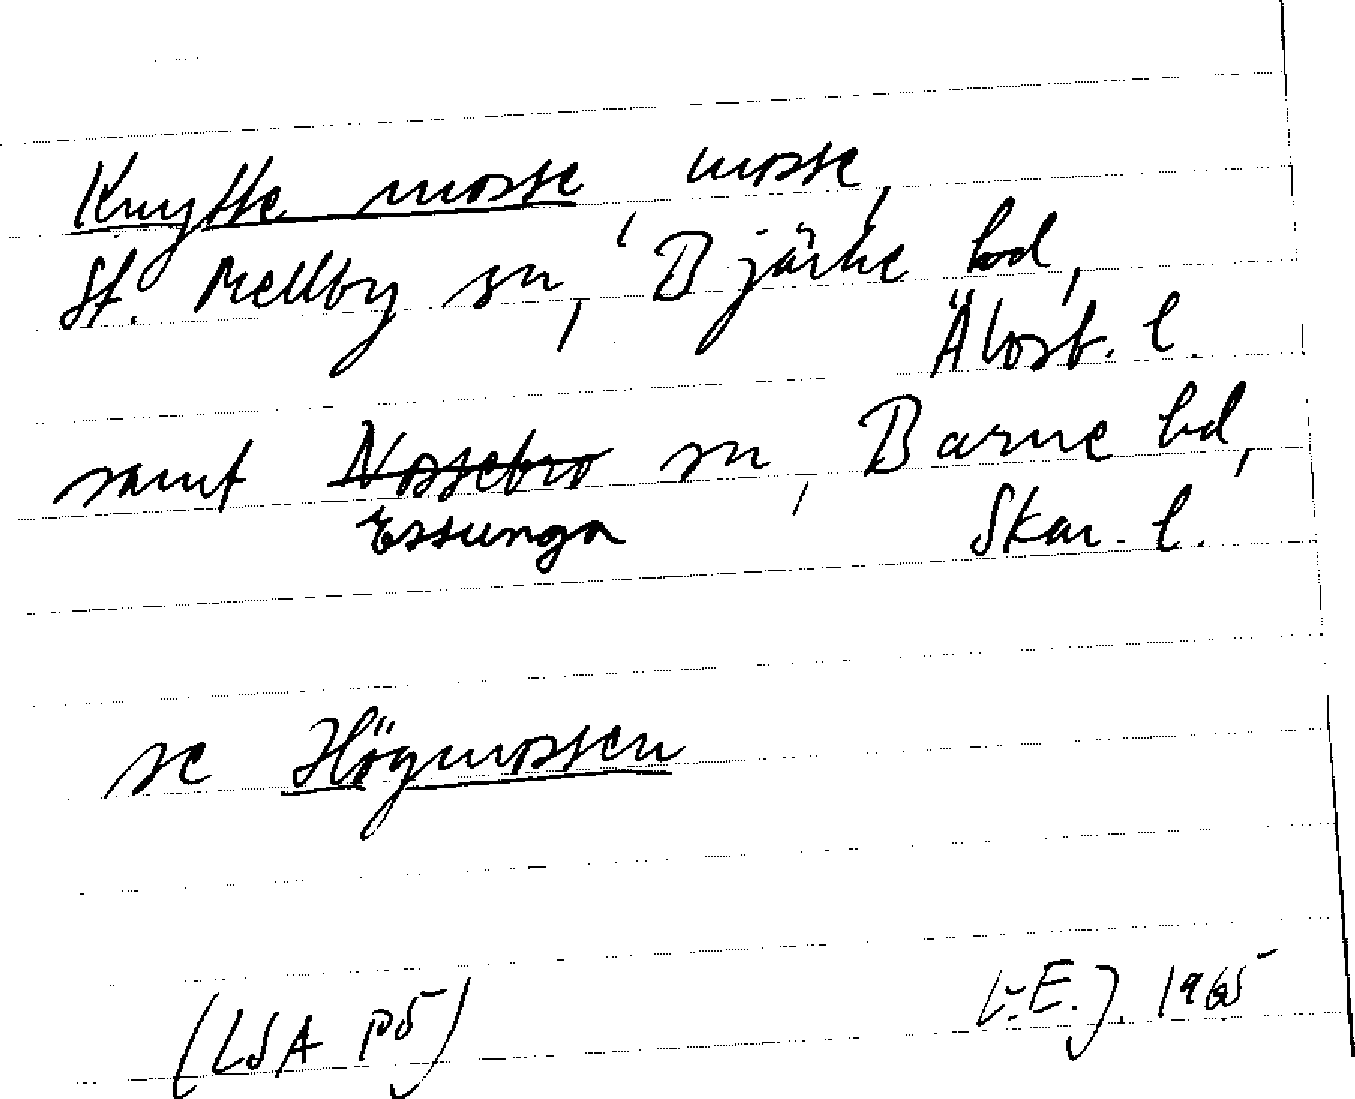 Knytte mosse, mosse,
St. Mellby sn, Bjärke hd,
Älvsb. l.
samt Nossebro sn, Barne hd,
Essunga Skar. l.
se Högmossen
(LSA p5) E.J. 1965